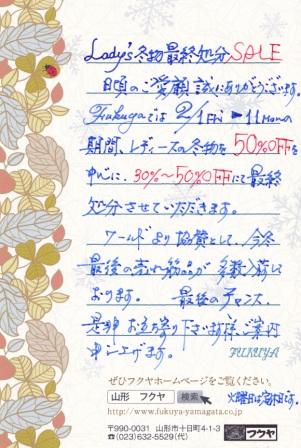 Lady's冬物最終処分SALE
日頃のご愛顧誠にありがとうございます。
Fukuyaでは 2/1 Fri ➡11 Mon の
期間、レディースの冬物を50%OFFを
中心に、30%~50%OFFにて最終
処分させていただきます。
ワールドより協賛として、今冬
最後の売れ筋品が多数入荷して
おります。 最後のチャンス、
是非お立ち寄り下さいます様ご案内
申し上げます。 FUKUYA
ぜひフクヤホームページをご覧ください。
山形 フクヤ 検索
火曜日は定休日です。
http://www.fukuya-yamagata.co.jp
〒990-0031 山形市十日町4-1-3
☎(023)632-5529(代)
フクヤ